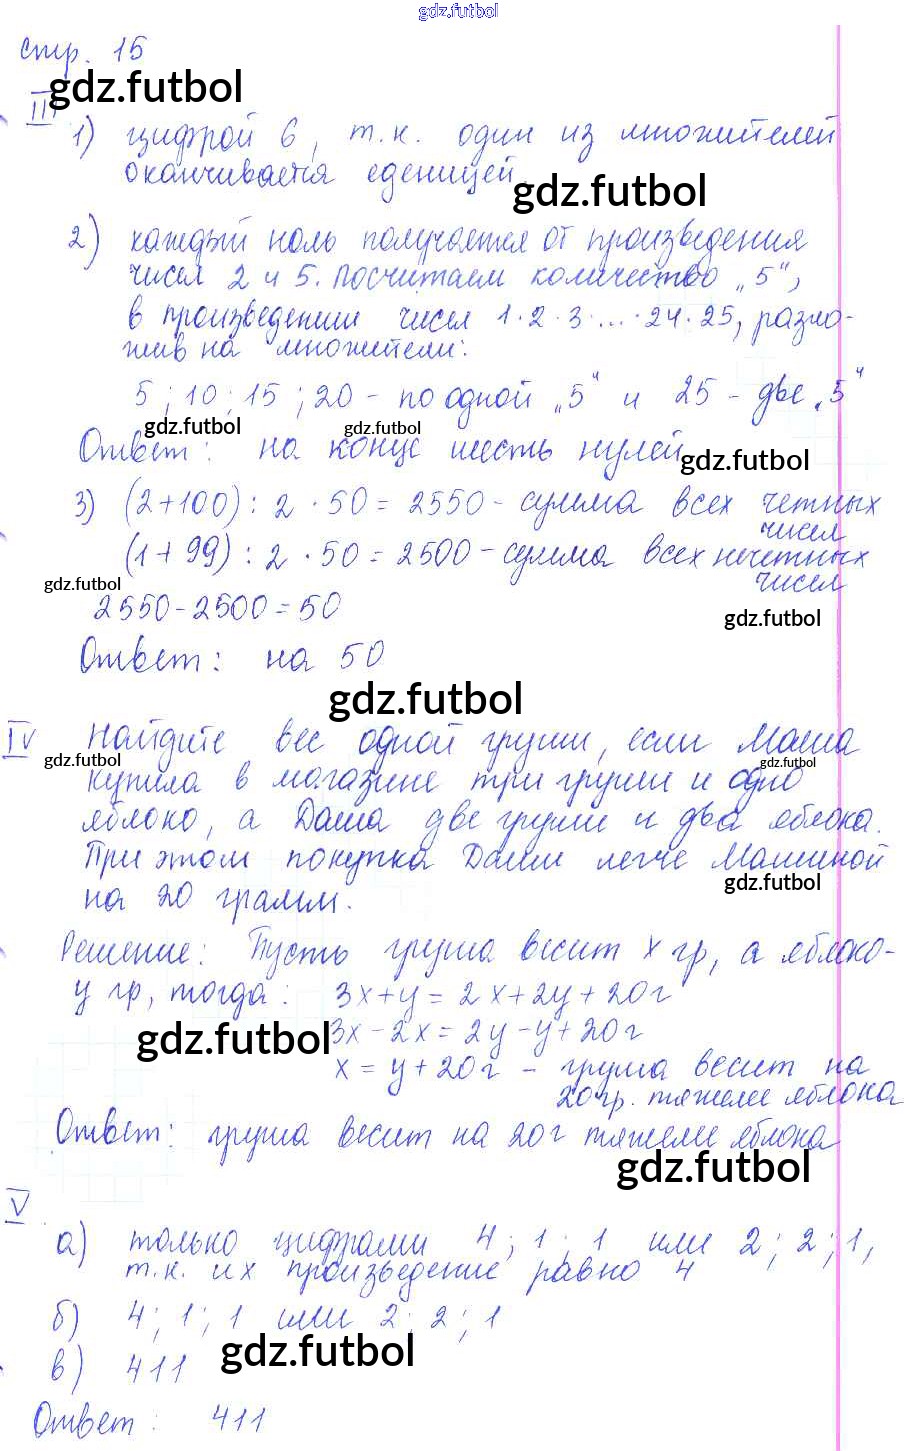 gdz.futbol
стр. 15
gdz.futbol
III
1) цифрой 6, т.к. один из множителей
оканчивается еденицей.
gdz.futbol
2) каждый ноль получается от произведения
чисел 2 и 5. Посчитаем количество „5“,
в произведении чисел 1·2·3·...·24·25, разло-
жив на множители:
5; 10; 15; 20 - по одной „5“ и 25 - две „5“
gdz.futbol gdz.futbol
Ответ: на конце шесть нулей
gdz.futbol
3) (2+100) : 2 · 50 = 2550 - сумма всех четных
чисел
(1+99) : 2 · 50 = 2500 - сумма всех нечетных
чисел
gdz.futbol
2550-2500=50
gdz.futbol
Ответ: на 50
gdz.futbol
IV Найдите вес одной груши, если Маша
gdz.futbol gdz.futbol
купила в магазине три груши и одно
яблоко, а Даша две груши и два яблока.
При этом покупка Даши легче Машиной
gdz.futbol
на 20 грамм.
Решение: Пусть груша весит x гр, а яблоко-
y гр, тогда: 3x+y = 2x+2y+20г
gdz.futbol
3x-2x=2y-y+20г
x = y+20г - груша весит на
20 гр. тяжелее яблока
Ответ: груша весит на 20г тяжелее яблока
gdz.futbol
V
а) только цифрами 4; 1; 1 или 2; 2; 1,
т.к. их произведение равно 4
б) 4; 1; 1 или 2; 2; 1
gdz.futbol
в) 411
Ответ: 411